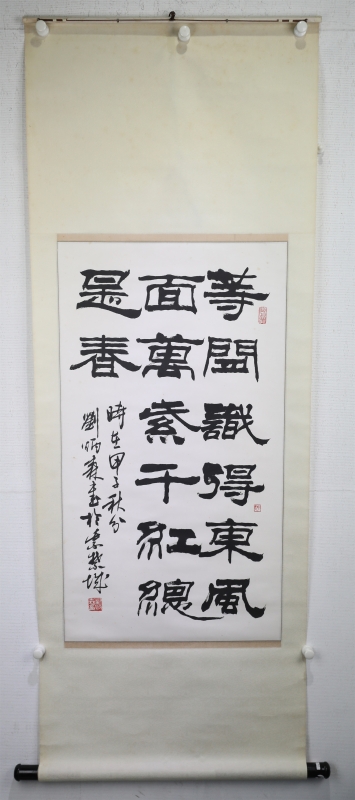 等閒識得東風
面萬紫千紅總
是春
時在甲子秋分
劉炳森書於紫禁城